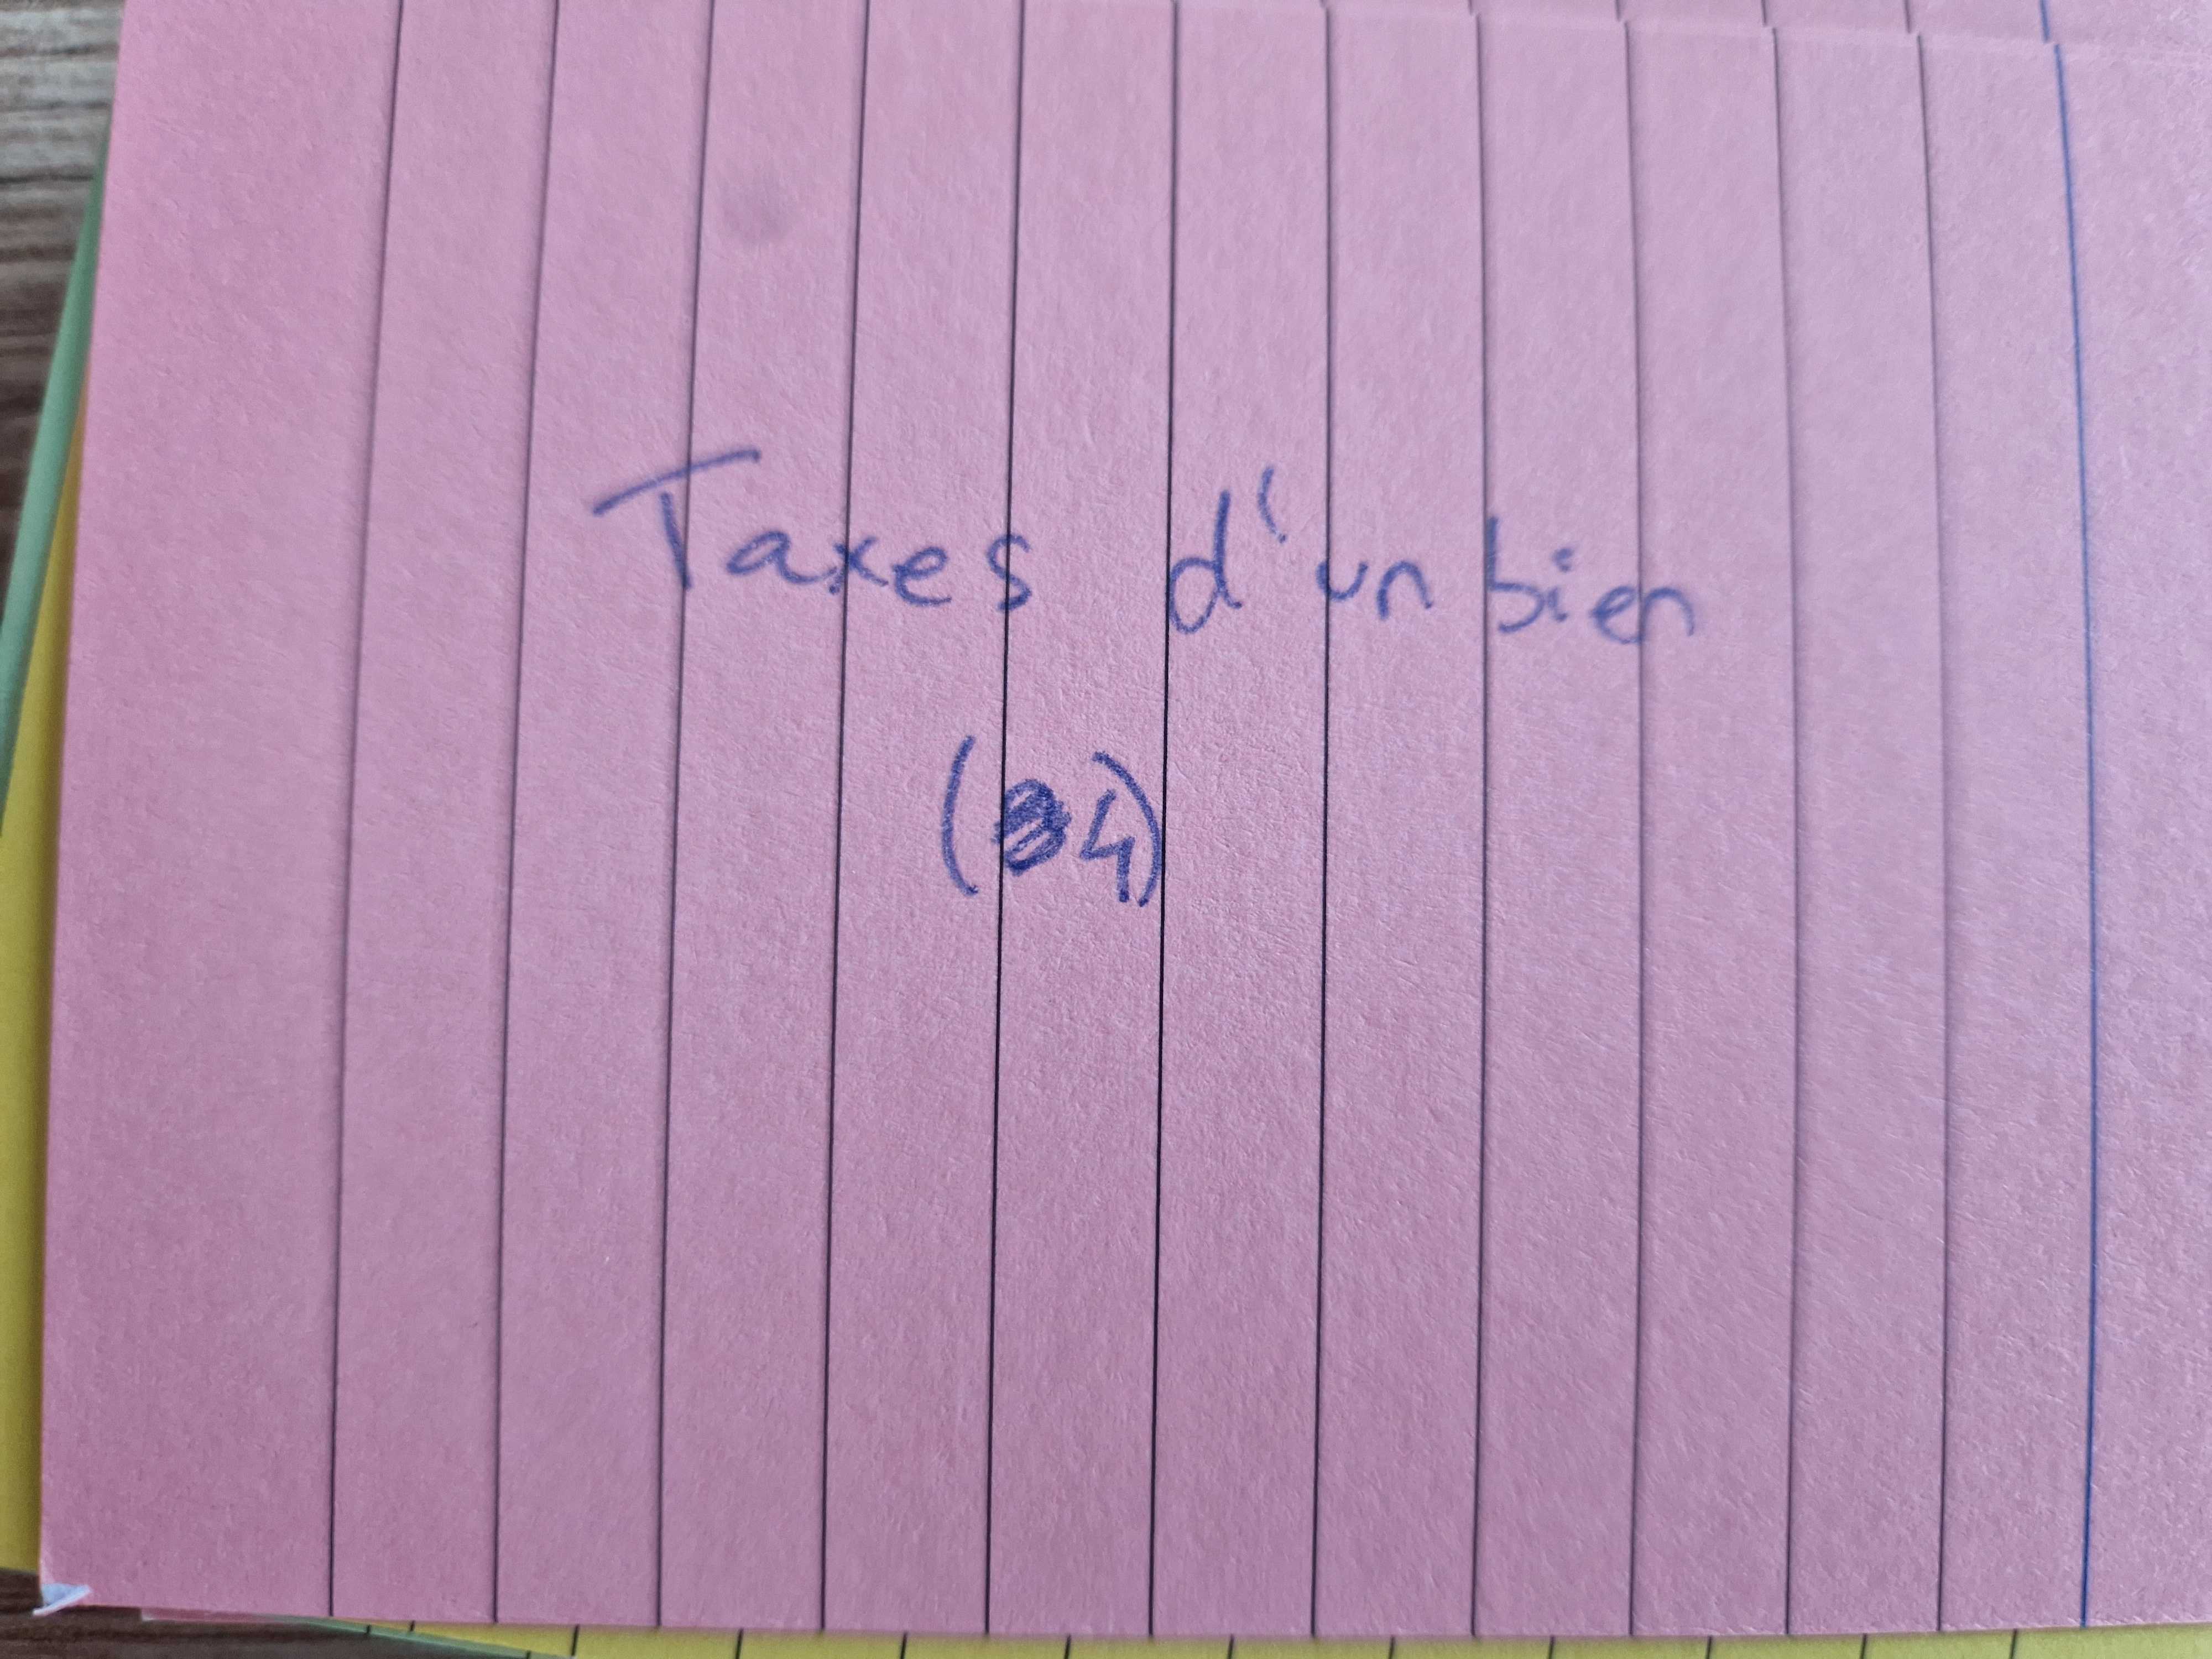 Taxes d'un bien
(4)